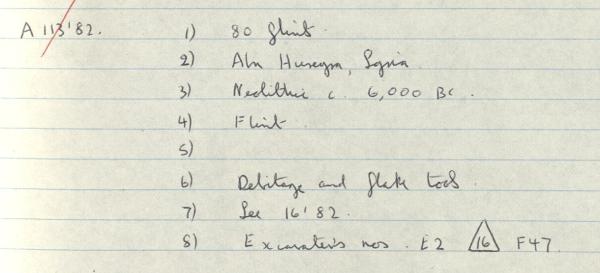 A 113'82. 1) 80 flint.
2) Abu Hureyra, Syria.
3) Neolithic c. 6,000 BC.
4) Flint.
5)
6) Debitage and flake tools.
7) See 16'82.
8) Excavater's nos. E2 16 F47